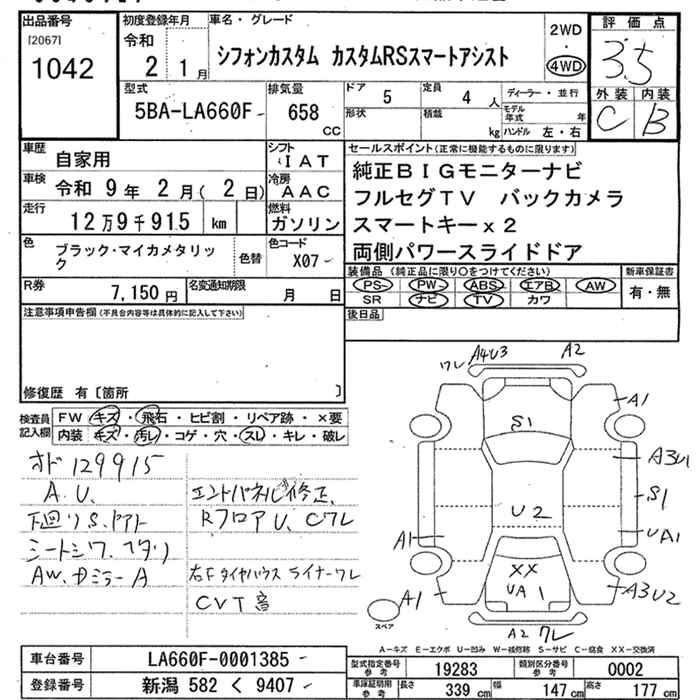 出品番号
[2067]
1042
初度登録年月
令和
2 1月
車名・グレード
シフォンカスタム カスタムRSスマートアシスト
2WD
・
4WD
評価点
3.5
外装 内装
C B
型式
5BA-LA660F
排気量
658
CC
ドア
5
定員
4人
ディーラー・並行
形状
積載
kg
モデル年式 年
ハンドル 左・右
車歴
自家用
シフト
IAT
車検
令和 9年 2月( 2日)
冷房
AAC
走行
12万9千915 km
燃料
ガソリン
色
ブラック・マイカメタリック
色替
色コード
X07
R券
7,150円
名変通知期限
月 日
セールスポイント(正常に機能するものに限ります)
純正BIGモニターナビ
フルセグTV バックカメラ
スマートキーx2
両側パワースライドドア
装備品(純正品に限り○をつけてください)
PS PW ABS エアB AW
SR ナビ TV カワ
新車保証書
有・無
後日品
注意事項申告欄(不具合内容等は具体的に記入して下さい)
修復歴 有〔箇所 〕
検査員記入欄
FW キズ・飛石・ヒビ割・リペア跡・×要
内装 キズ・汚レ・コゲ・穴・スレ・キレ・破レ
オド129915
A.U.
下廻りS.
シートシワ.ヘタリ
AW.
エントパネル修正.
RフロアU、Cワレ
右Fタイヤハウス ライナーワレ
CVT音
ワレ A4U3 A2
A1
S1
A3U1
S1
U2
UA1
A1
XX
UA1
A1
A3U2
A2 ワレ
スペア
A-キズ E-エクボ U-凹み W-補修跡 S-サビ C-腐食 XX-交換済
車台番号
LA660F-0001385
登録番号
新潟 582 く 9407
型式指定番号 参考
19283
類別区分番号 参考
0002
車庫証明用 参考
長さ 339cm 幅 147cm 高さ 177cm